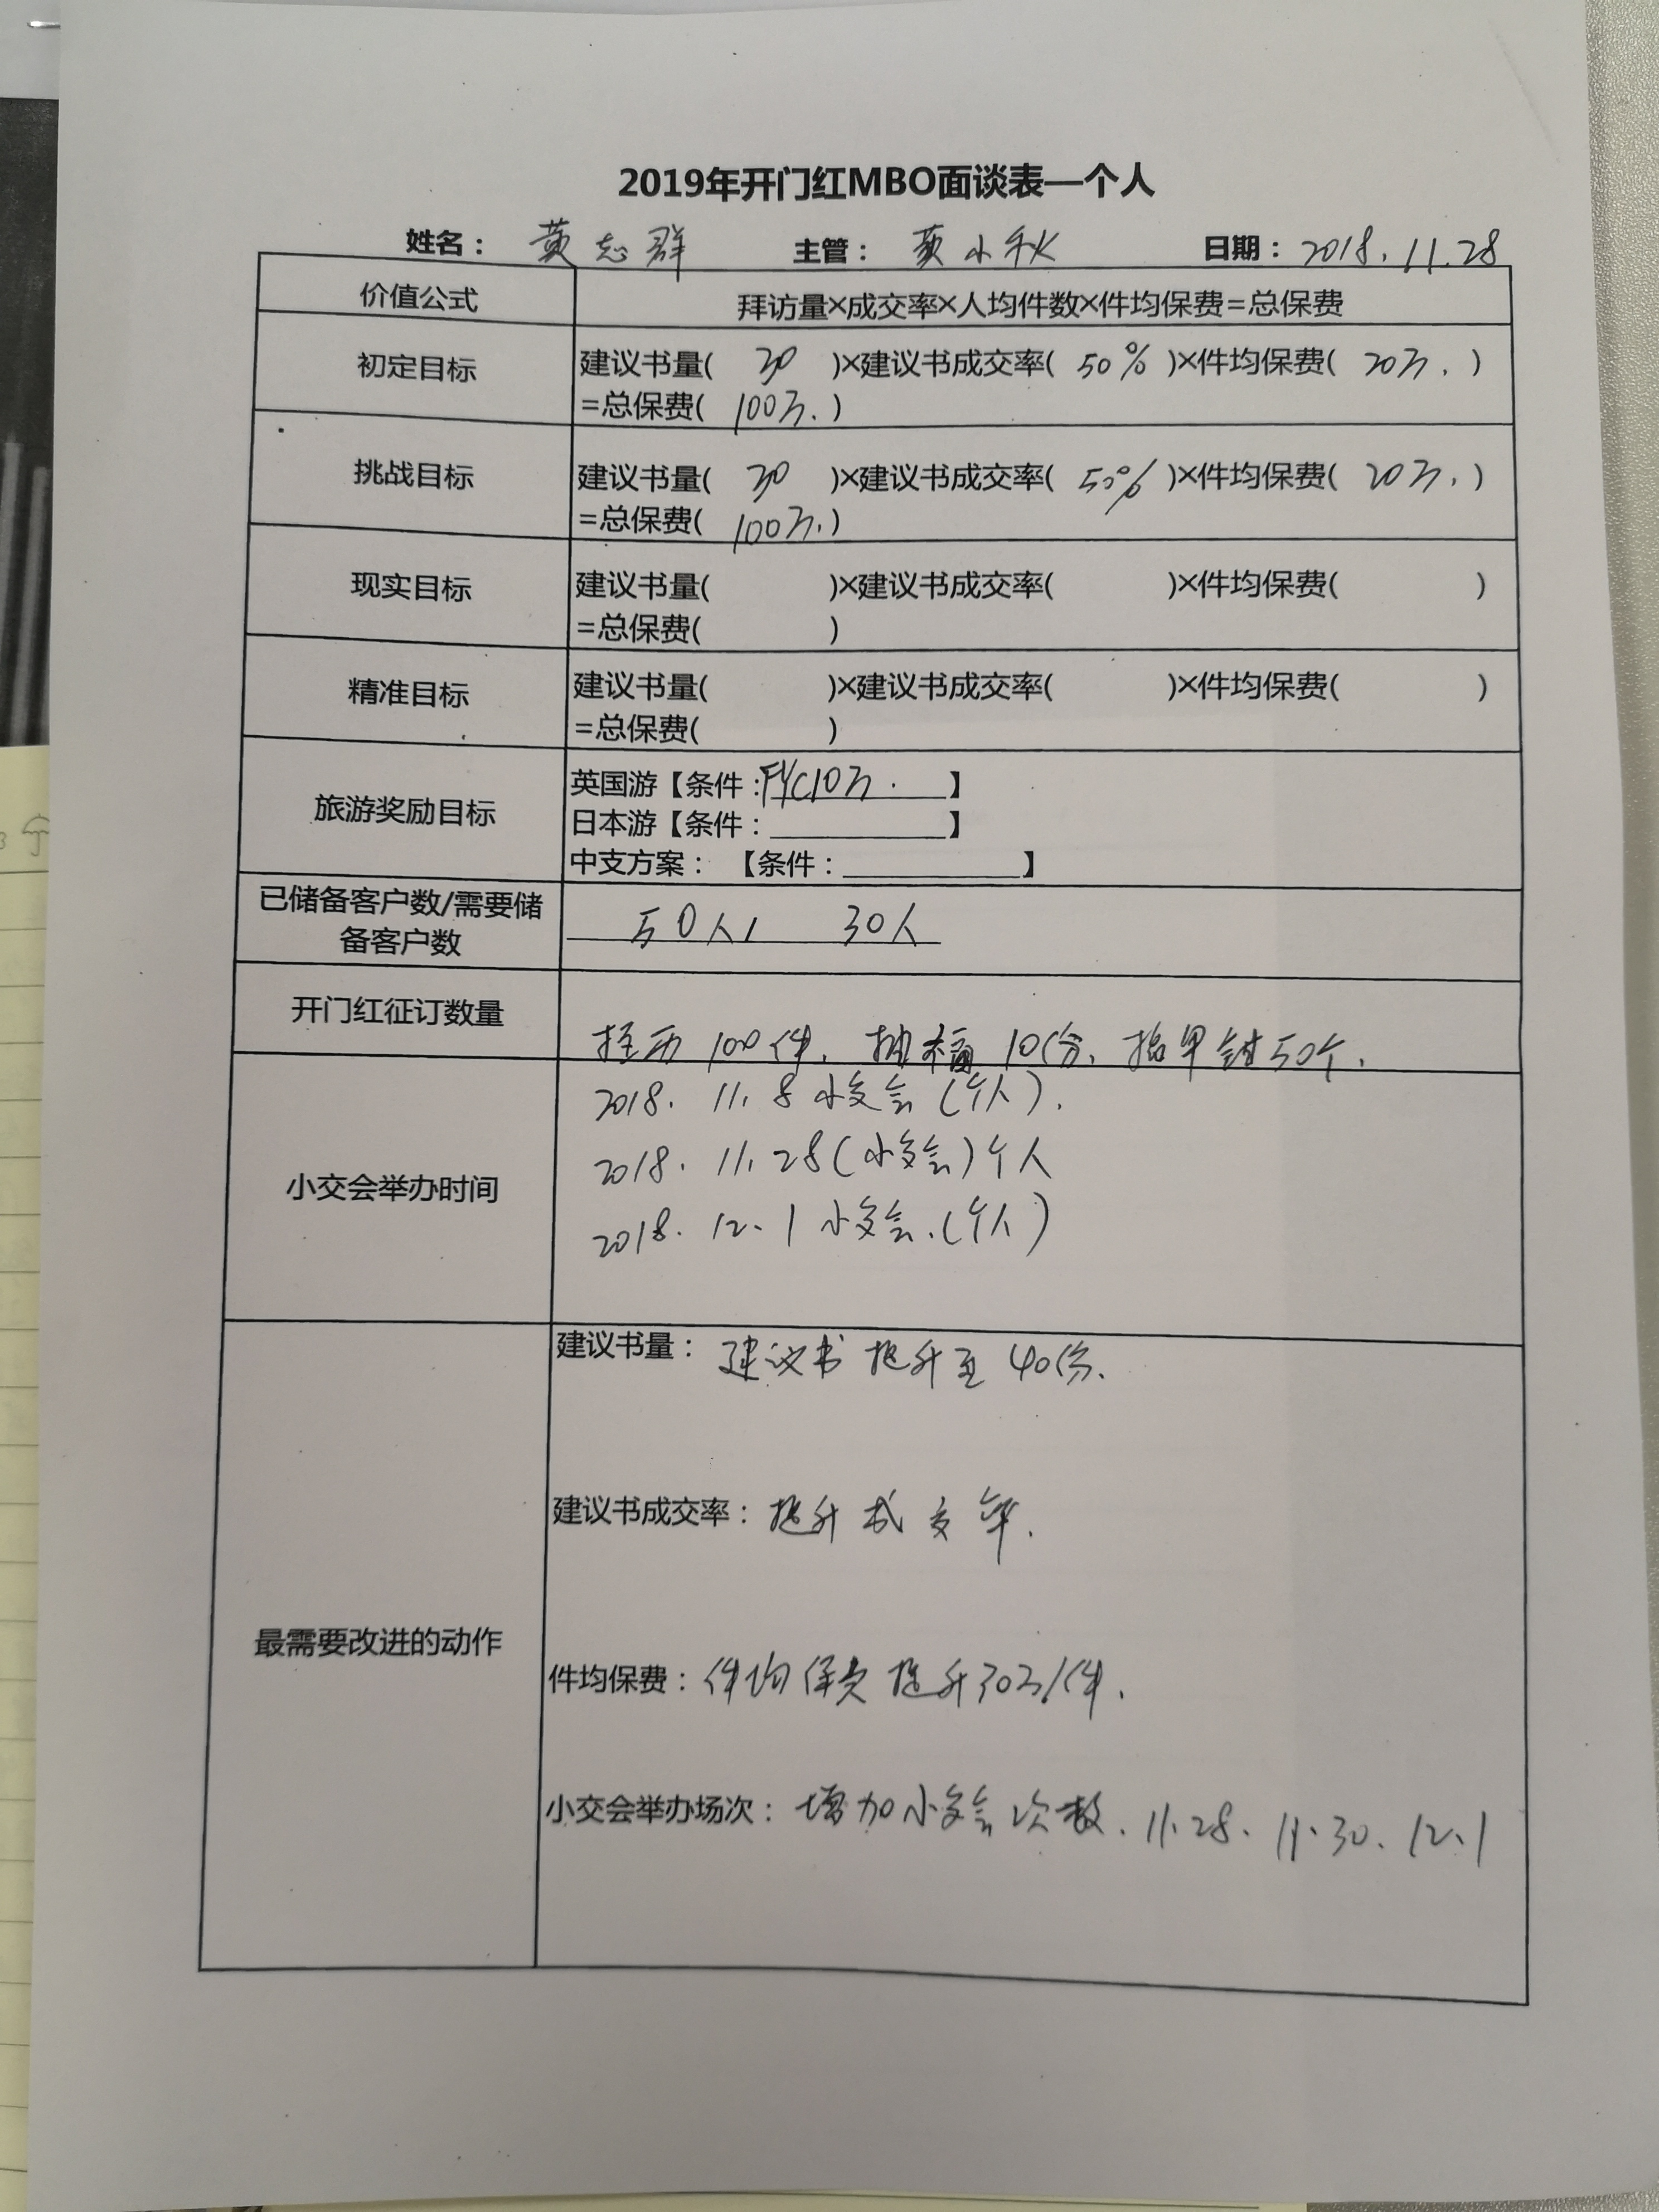 2019年开门红MBO面谈表—个人
姓名： 黄志群 主管： 黄小秋 日期：2018.11.28
价值公式 拜访量×成交率×人均件数×件均保费=总保费
初定目标 建议书量( 30 )×建议书成交率( 50% )×件均保费( 20万. )
=总保费( 100万. )
挑战目标 建议书量( 30 )×建议书成交率( 50% )×件均保费( 20万. )
=总保费( 100万. )
现实目标 建议书量( )×建议书成交率( )×件均保费( )
=总保费( )
精准目标 建议书量( )×建议书成交率( )×件均保费( )
=总保费( )
旅游奖励目标 英国游【条件：FYC10万.】
日本游【条件：】
中支方案： 【条件：】
已储备客户数/需要储
备客户数 50人/ 30人
开门红征订数量 挂历100件、抽福10份、指甲钳50个.
2018. 11. 8 小交会（个人）.
小交会举办时间 2018. 11. 28（小交会）个人
2018. 12. 1 小交会.（个人）
建议书量：建议书提升至40份.
建议书成交率：提升成交率.
最需要改进的动作
件均保费：件均保费提升30万/件.
小交会举办场次：增加小交会次数. 11.28、11.30、12.1